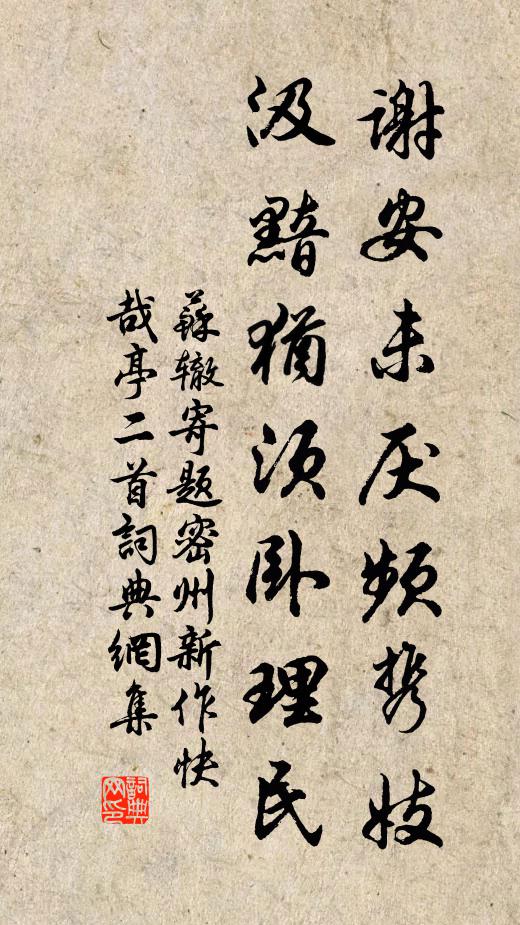 谢安未厌频携妓
汲黯犹须卧理民
蘇辙寄题密州新作快
哉亭二首詞典網集
詞典网印